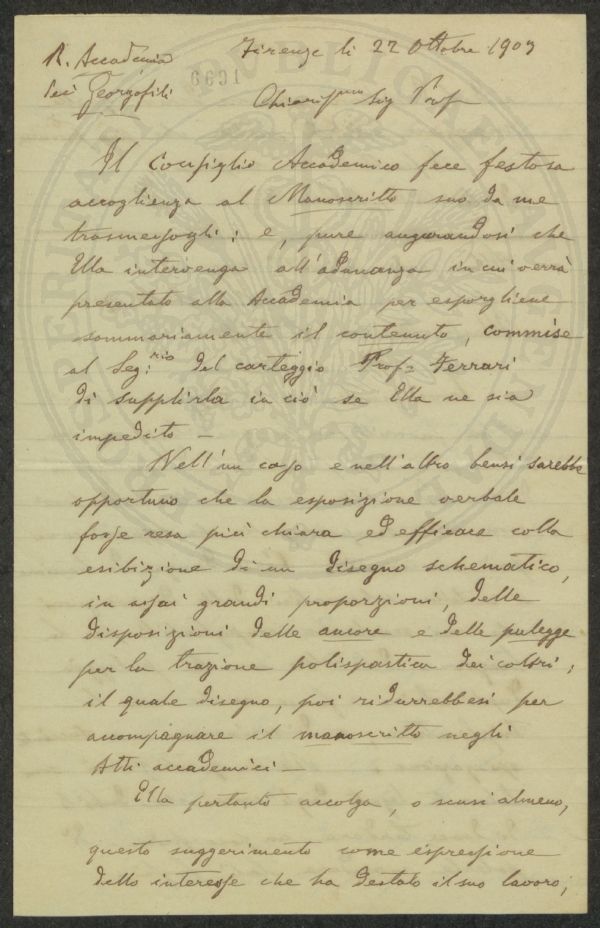 R. Accademia
dei Georgofili
6691
Firenze li 22 Ottobre 1903
Chiarissmo Sig Prof
Il Consiglio Accademico fece festosa
accoglienza al Manoscritto suo da me
trasmessogli; e, pure augurandosi che
Ella intervenga all'adunanza in cui verrà
presentato alla Accademia per esporgliene
sommariamente il contenuto, commise
al Seg:rio del carteggio Prof= Ferrari
di supplirla in ciò se Ella ne sia
impedito —
Nell'un caso e nell'altro bensì sarebbe
opportuno che la esposizione verbale
fosse resa più chiara ed efficace colla
esibizione di un disegno schematico,
in assai grandi proporzioni, delle
disposizioni delle ancore e delle pulegge
per la trazione polispastica dei coltri;
il quale disegno, poi ridurrebbesi per
accompagnare il manoscritto negli
Atti accademici —
Ella pertanto accolga, o scusi almeno,
questo suggerimento come espressione
dello interesse che ha destato il suo lavoro;